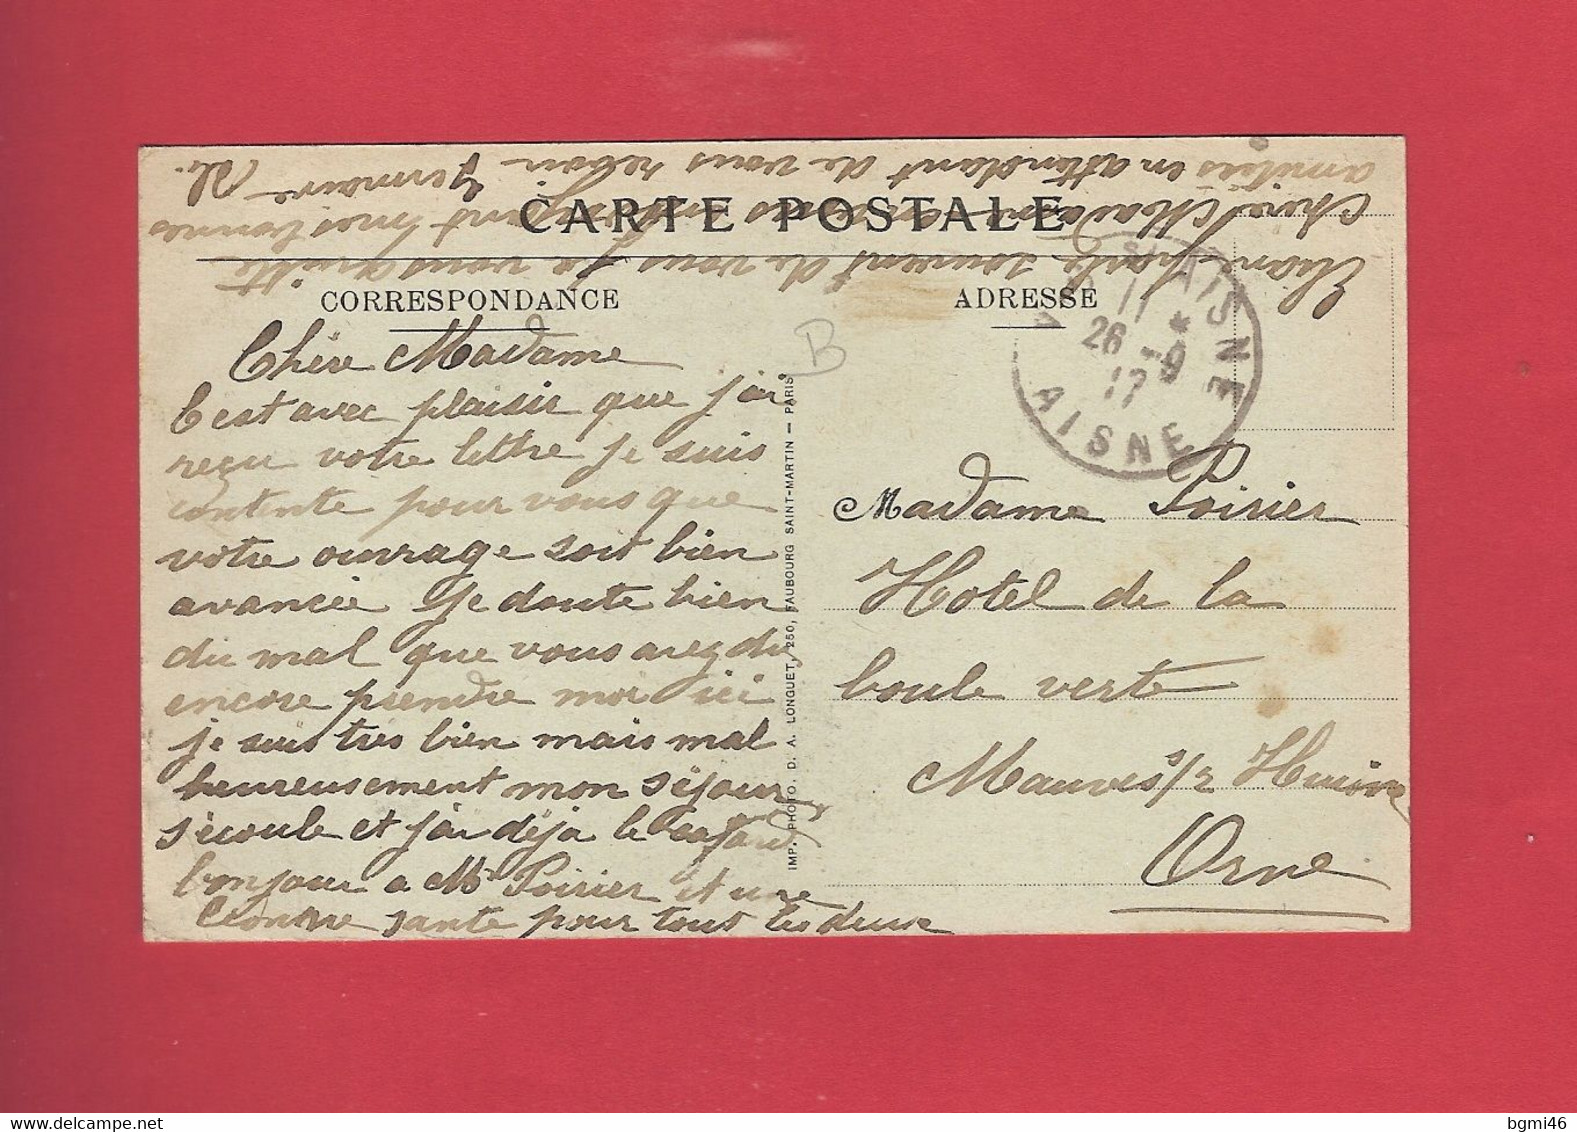 CARTE POSTALE
CORRESPONDANCE
ADRESSE
Chère Madame
C'est avec plaisir que j'ai
reçu votre lettre je suis
contente pour vous que
votre ouvrage soit bien
avancée je doute bien
du mal que vous avez du
encore prendre moi ici
je suis très bien mais mal
heureusement mon séjour
s'écoule et j'ai déjà le cafard
bonjour a Mr Poirier et une
bonne santé pour tout les deux
Eliane parle souvent de vous je vous quitte
Chère Madame en vous envoyant mes bonnes
amitiés en attendant de vous revoir Germaine
IMP. PHOTO. D. A. LONGUET, 250, FAUBOURG SAINT-MARTIN — PARIS
B
AISNE
11 *
26 -9
17
AISNE
Madame Poirier
Hotel de la
boule verte
Mauves s/r Huisne
Orne
bgmi46